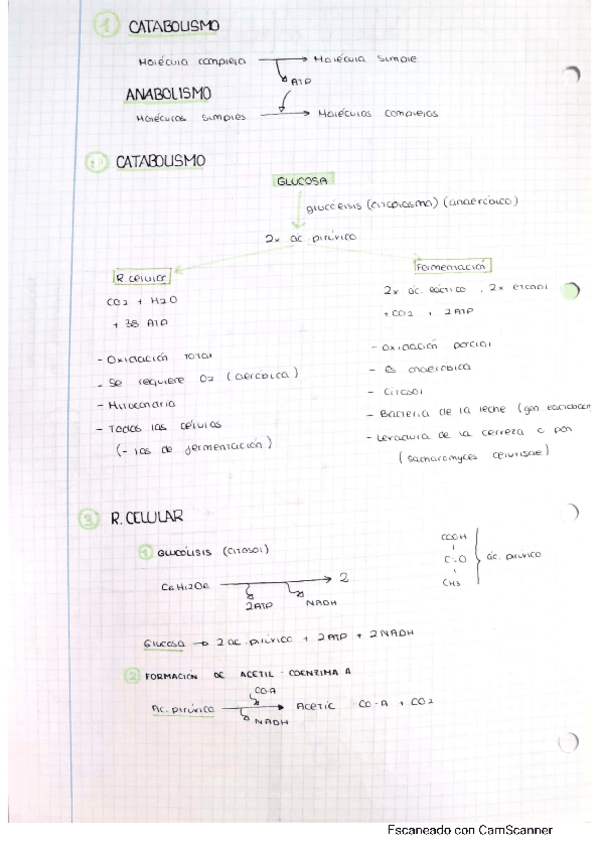 1 CATABOLISMO
Molécula compleja → Molécula simple
ATP
ANABOLISMO
Moléculas simples → Moléculas complejas
CATABOLISMO
GLUCOSA
glucólisis (citoplasma) (anaeróbico)
2x ac pirúvico
R. celular
CO2 + H2O
+ 38 ATP
- Oxidación total
- Se requiere O2 (aeróbica)
- Mitocondria
- Todas las células
(- las de fermentación)
Fermentación
2x ác. láctico, 2x etanol
+ CO2 , 2 ATP
- Oxidación parcial
- Es anaeróbica
- Citosol
- Bacteria de la leche (gen
- Levadura de la cerveza o pan
3 R. CELULAR
1 GLUCÓLISIS (citosol)
C6H12O6 → 2
2ATP NADH
COOH
C=O
CH3
ác. pirúvico
Glucosa → 2 ac. pirúvico + 2 ATP + 2 NADH
2 FORMACIÓN DE ACETIL - COENZIMA A
CO-A
Ac. pirúvico → ACETIL CO-A + CO2
NADH
Escaneado con CamScanner